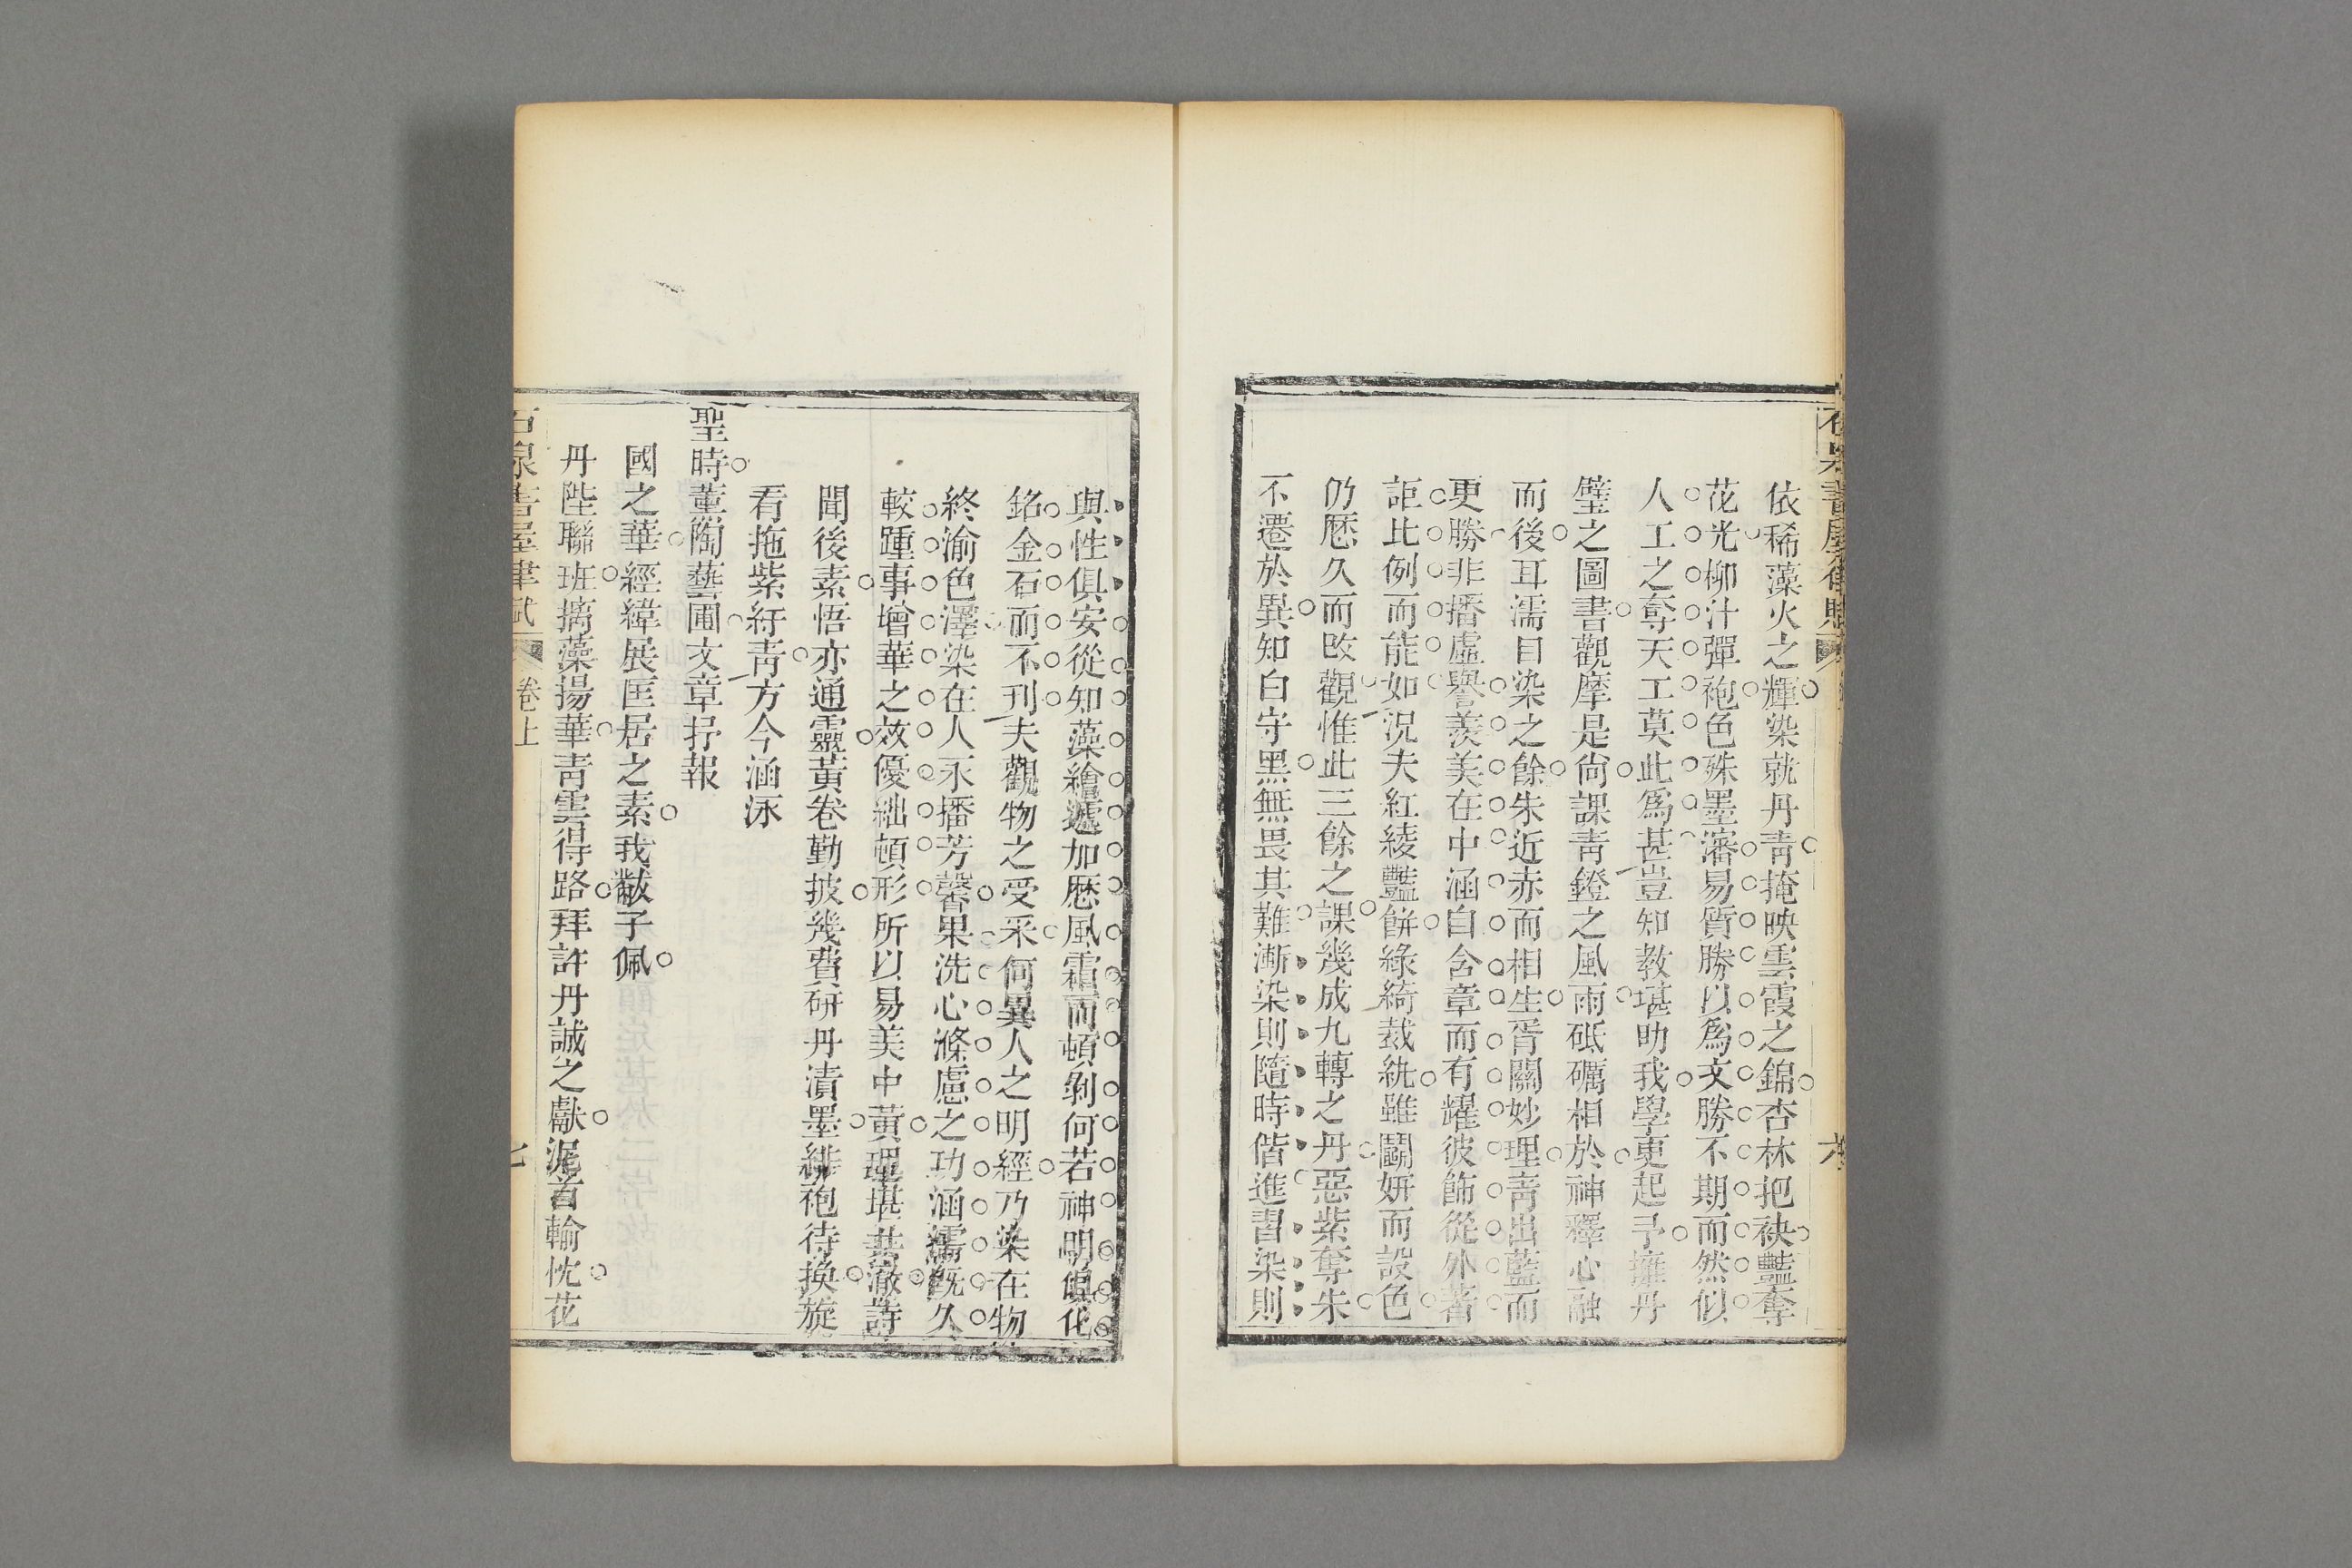 依稀藻火之輝染就丹靑掩映雲霞之錦杏林把袂豔奪
花光柳汁彈袍色殊墨瀋易質勝以爲文勝不期而然似
人工之奪天工莫此爲甚豈知敎堪助我學更起予擁丹
璧之圖書觀摩是尙課靑鐙之風雨砥礪相於神釋心融
而後耳濡目染之餘朱近赤而相生胥關妙理靑出藍而
更勝非播虛譽羨美在中涵自含章而有耀彼飾從外著
詎比例而能如況夫紅綾豔餅綠綺裁紈雖鬭姸而設色
仍厯久而改觀惟此三餘之課幾成九轉之丹惡紫奪朱
不遷於異知白守黑無畏其難漸染則隨時偕進習染則
與性俱安從知藻繪遞加厯風霜而頓剝何若神明俱化
銘金石而不刋夫觀物之受采何異人之明經乃染在物
終渝色澤染在人永播芳馨果洗心滌慮之功涵濡旣久
較踵事增華之效優絀頓形所以易美中黃理堪共澈詩
聞後素悟亦通靈黃卷勤披幾費硏丹漬墨緋袍待換旋
看拖紫紆靑方今涵泳
聖時薰陶藝圃文章抒報
國之華經緯展匡居之素我黻子佩
丹陛聯班摛藻揚華靑雲得路拜許丹誠之獻泥首輸忱花
石泉書屋律賦 卷上 七